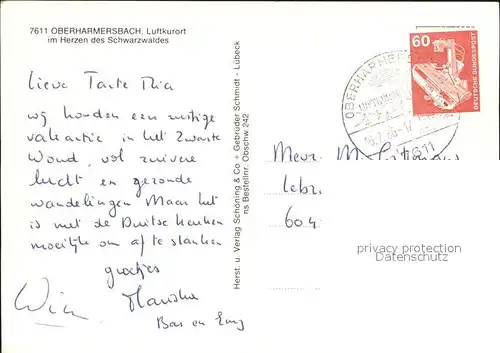 7611 OBERHARMERSBACH, Luftkurort
im Herzen des Schwarzwaldes
Lieve Tante Mia
wij houden een rustige
vakantie in het Zwarte
Woud, vol zuivere
lucht en gezonde
wandelingen Maar het
is met de Duitse keuken
moeilijk om af te slanken
groetjes
Wim
Bas en
Herst. u. Verlag Schöning & Co + Gebrüder Schmidt - Lübeck
ns Bestellnr. Obschw 242
60
DEUTSCHE BUNDESPOST
7611
Mevr.
604
privacy protection
Datenschutz